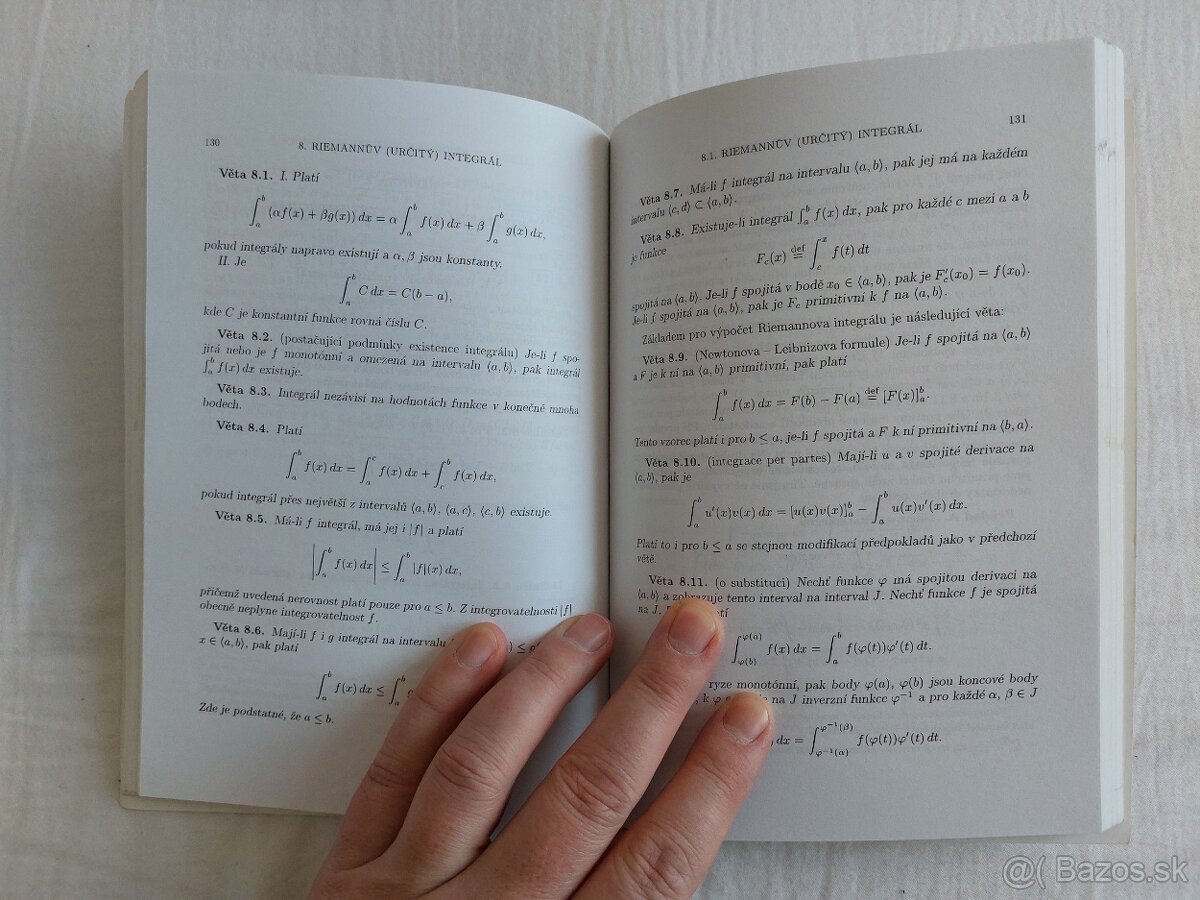 130
8. RIEMANNŮV (URČITÝ) INTEGRÁL
Věta 8.1. I. Platí
∫_a^b (αf(x) + βg(x)) dx = α ∫_a^b f(x) dx + β ∫_a^b g(x) dx,
pokud integrály napravo existují a α, β jsou konstanty.
II. Je
∫_a^b C dx = C(b − a),
kde C je konstantní funkce rovná číslu C.
Věta 8.2. (postačující podmínky existence integrálu) Je-li f spo-
jitá nebo je f monotónní a omezená na intervalu ⟨a, b⟩, pak integrál
∫_a^b f(x) dx existuje.
Věta 8.3. Integrál nezávisí na hodnotách funkce v konečně mnoha
bodech.
Věta 8.4. Platí
∫_a^b f(x) dx = ∫_a^c f(x) dx + ∫_c^b f(x) dx,
pokud integrál přes největší z intervalů ⟨a, b⟩, ⟨a, c⟩, ⟨c, b⟩ existuje.
Věta 8.5. Má-li f integrál, má jej i |f| a platí
|∫_a^b f(x) dx| ≤ ∫_a^b |f|(x) dx,
přičemž uvedená nerovnost platí pouze pro a ≤ b. Z integrovatelnosti |f|
obecně neplyne integrovatelnost f.
Věta 8.6. Mají-li f i g integrál na intervalu
x ∈ ⟨a, b⟩, pak platí
∫_a^b f(x) dx ≤ ∫_a^b
Zde je podstatné, že a ≤ b.
8.1. RIEMANNŮV (URČITÝ) INTEGRÁL
131
Věta 8.7. Má-li f integrál na intervalu ⟨a, b⟩, pak jej má na každém
intervalu ⟨c, d⟩ ⊂ ⟨a, b⟩.
Věta 8.8. Existuje-li integrál ∫_a^b f(x) dx, pak pro každé c mezi a a b
je funkce
F_c(x) def= ∫_c^x f(t) dt
spojitá na ⟨a, b⟩. Je-li f spojitá v bodě x₀ ∈ ⟨a, b⟩, pak je F′_c(x₀) = f(x₀).
Je-li f spojitá na ⟨a, b⟩, pak je F_c primitivní k f na ⟨a, b⟩.
Základem pro výpočet Riemannova integrálu je následující věta:
Věta 8.9. (Newtonova – Leibnizova formule) Je-li f spojitá na ⟨a, b⟩
a F je k ní na ⟨a, b⟩ primitivní, pak platí
∫_a^b f(x) dx = F(b) − F(a) def= [F(x)]_a^b.
Tento vzorec platí i pro b ≤ a, je-li f spojitá a F k ní primitivní na ⟨b, a⟩.
Věta 8.10. (integrace per partes) Mají-li u a v spojité derivace na
⟨a, b⟩, pak je
∫_a^b u′(x)v(x) dx = [u(x)v(x)]_a^b − ∫_a^b u(x)v′(x) dx.
Platí to i pro b ≤ a se stejnou modifikací předpokladů jako v předchozí
větě.
Věta 8.11. (o substituci) Nechť funkce φ má spojitou derivaci na
⟨a, b⟩ a zobrazuje tento interval na interval J. Nechť funkce f je spojitá
na J.
∫_{φ(b)}^{φ(a)} f(x) dx = ∫_a^b f(φ(t))φ′(t) dt.
ryze monotónní, pak body φ(a), φ(b) jsou koncové body
k φ na J inverzní funkce φ⁻¹ a pro každé α, β ∈ J
dx = ∫_{φ⁻¹(α)}^{φ⁻¹(β)} f(φ(t))φ′(t) dt.
@( Bazos.sk